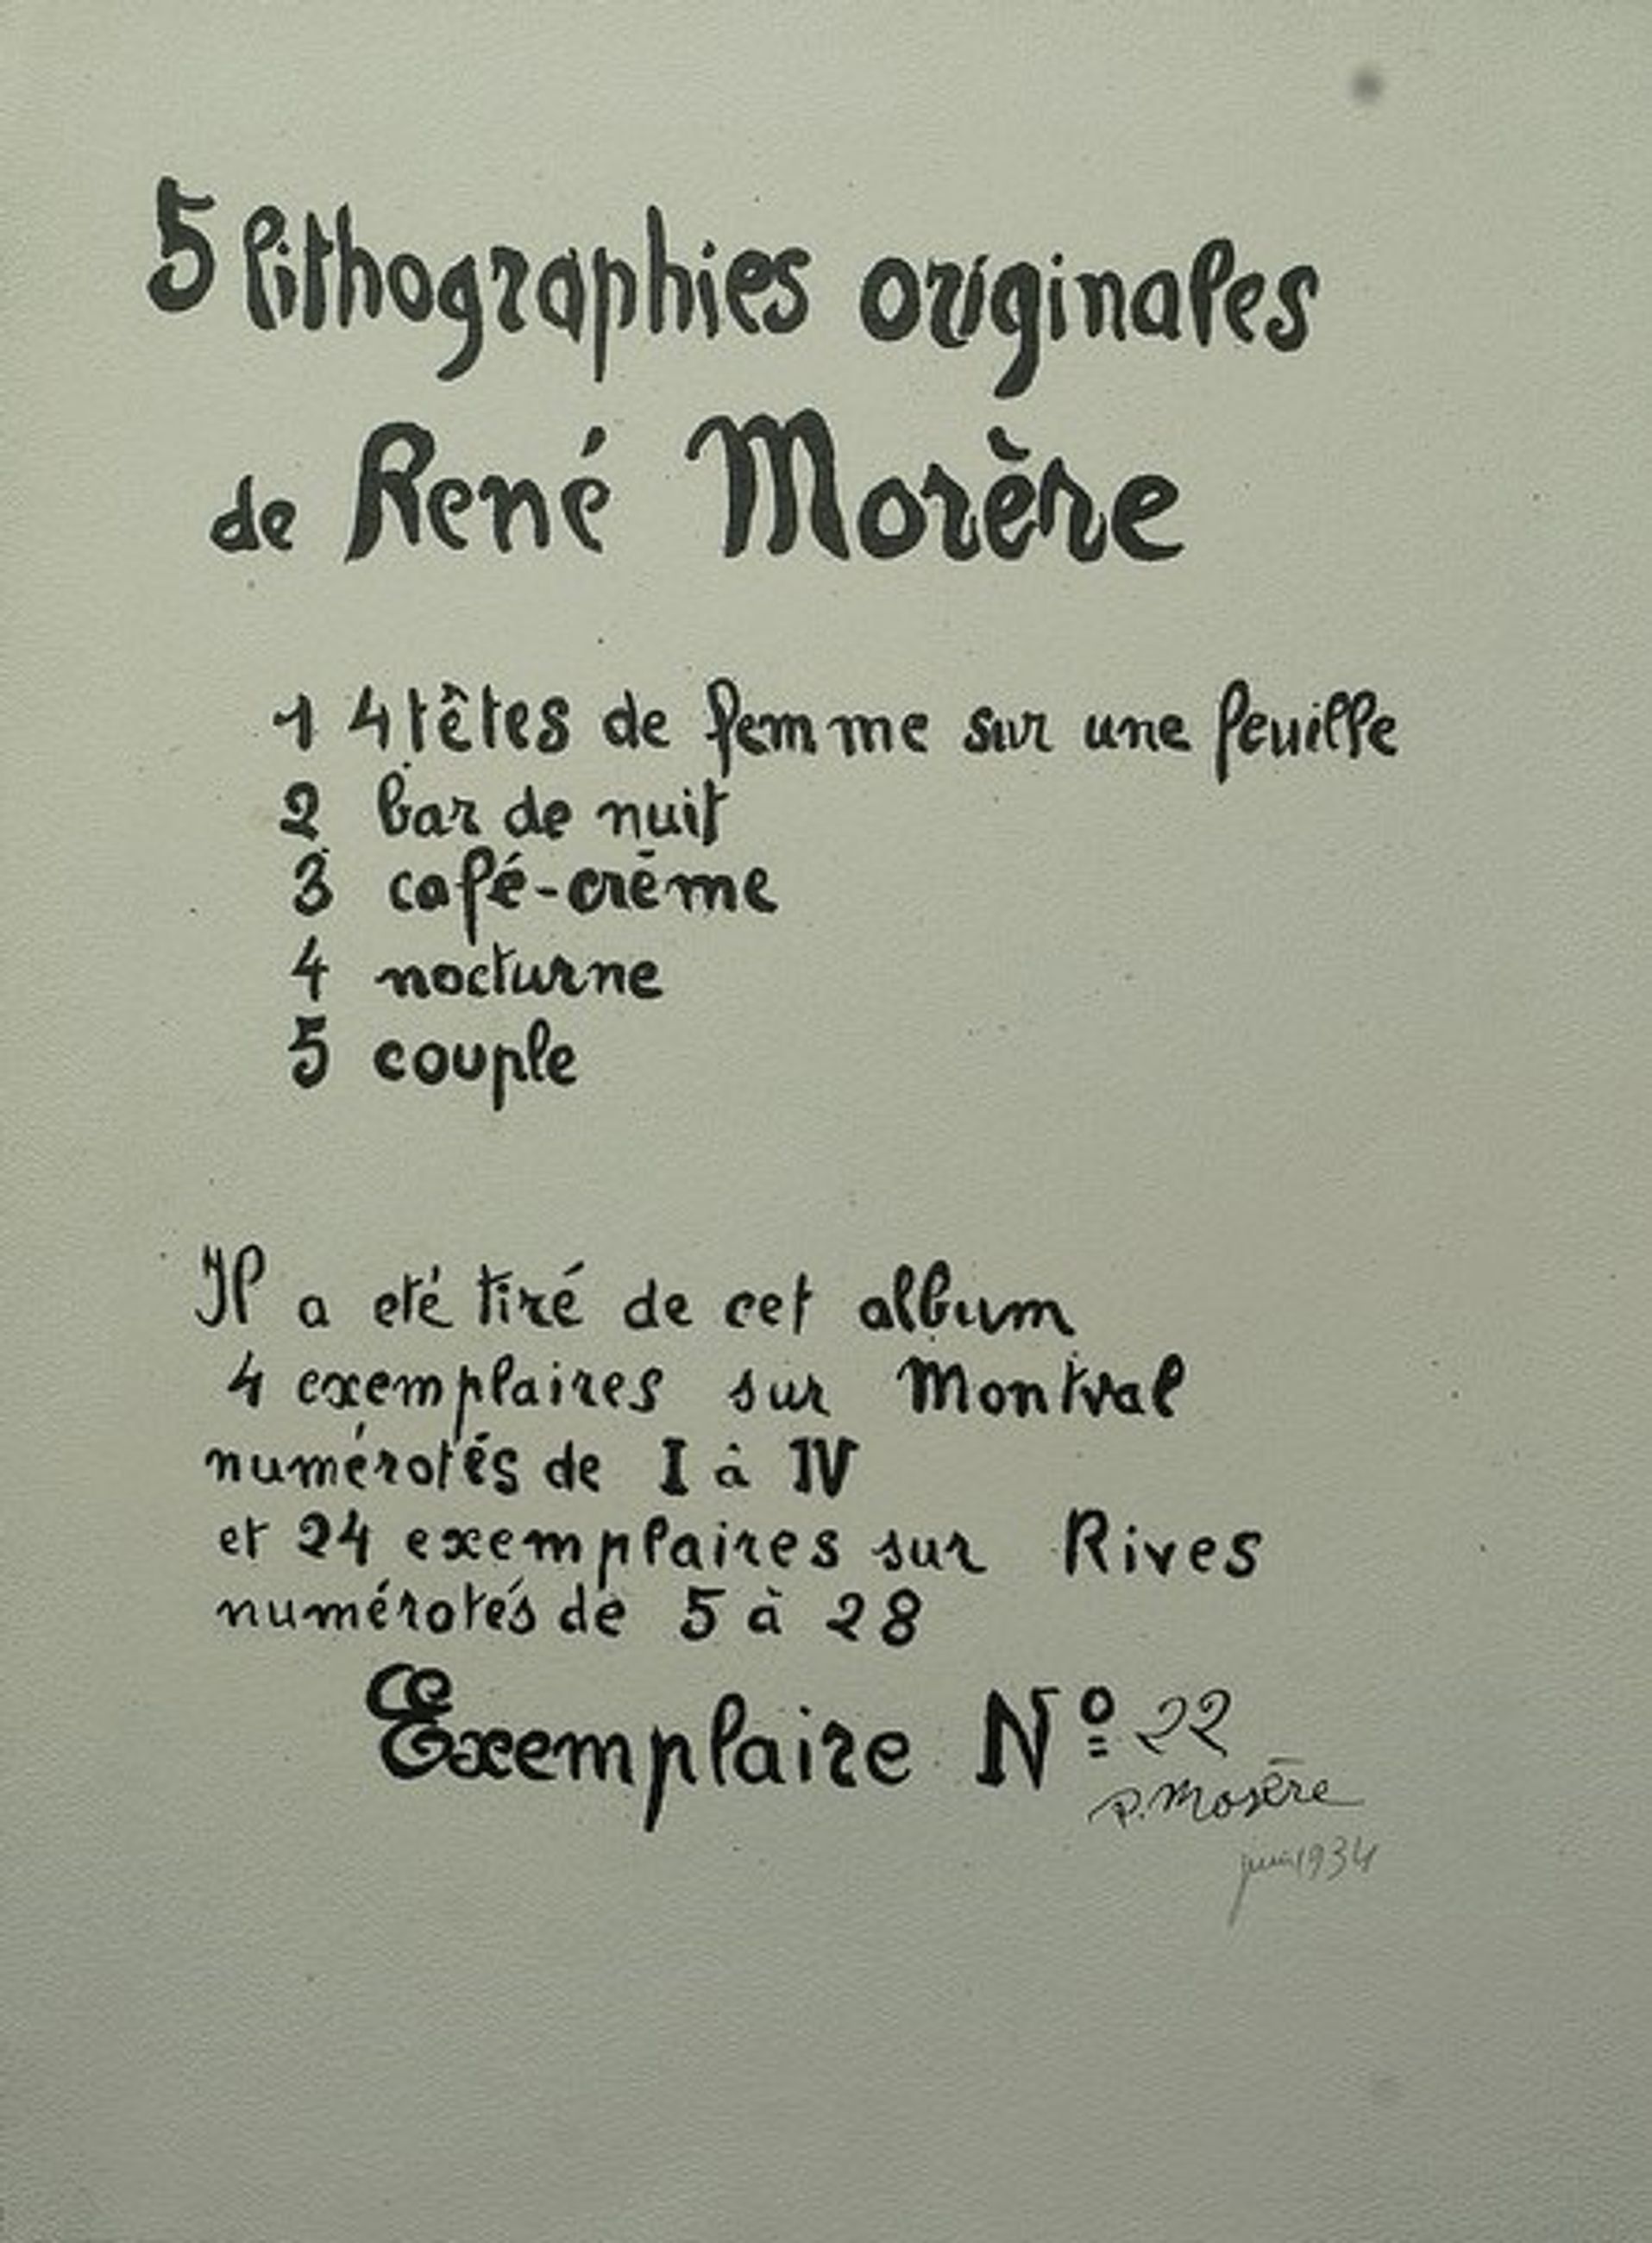 5 lithographies originales
de René Morère
1 4 têtes de femme sur une feuille
2 bar de nuit
3 café-crème
4 nocturne
5 couple
Il a eté tiré de cet album
4 exemplaires sur Montval
numérotés de I à IV
et 24 exemplaires sur Rives
numérotés de 5 à 28
Exemplaire Nº 22
R. Morère
juin 1934